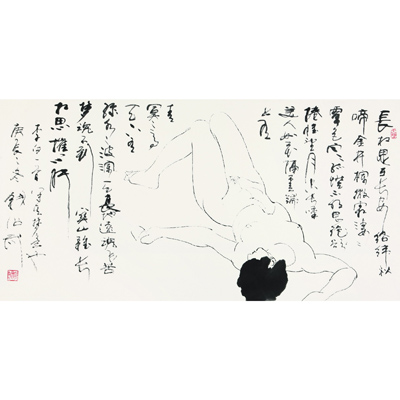 長相思在長安絡緯秋
啼金井欄微霜淒淒
簟色寒孤燈不明思欲
絕帷望月空長歎
美人如花隔雲端
上有
青
冥之高
天下有
淥水之波瀾天長地遠魂飛苦
夢魂不到關山難長
相思摧心肝
李白一首
庚辰之冬